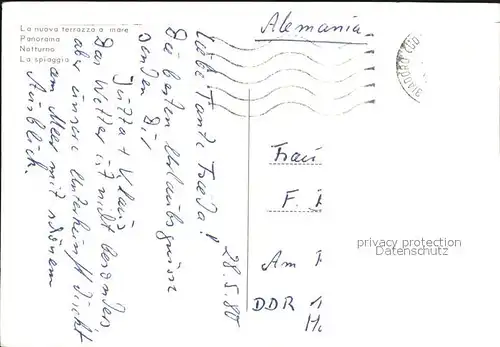 La nuova terrazza a mare
Panorama
Notturno
La spiaggia
Alemania
28.5.80
Liebe Tante Frieda!
Die besten Urlaubsgrüsse
senden Dir
Jutta + Klaus
Das Wetter ist nicht besonders
aber unsere Unterkunft dicht
am Meer mit schönem
Ausblick.
Frau
F.
Am
DDR
privacy protection
Datenschutz